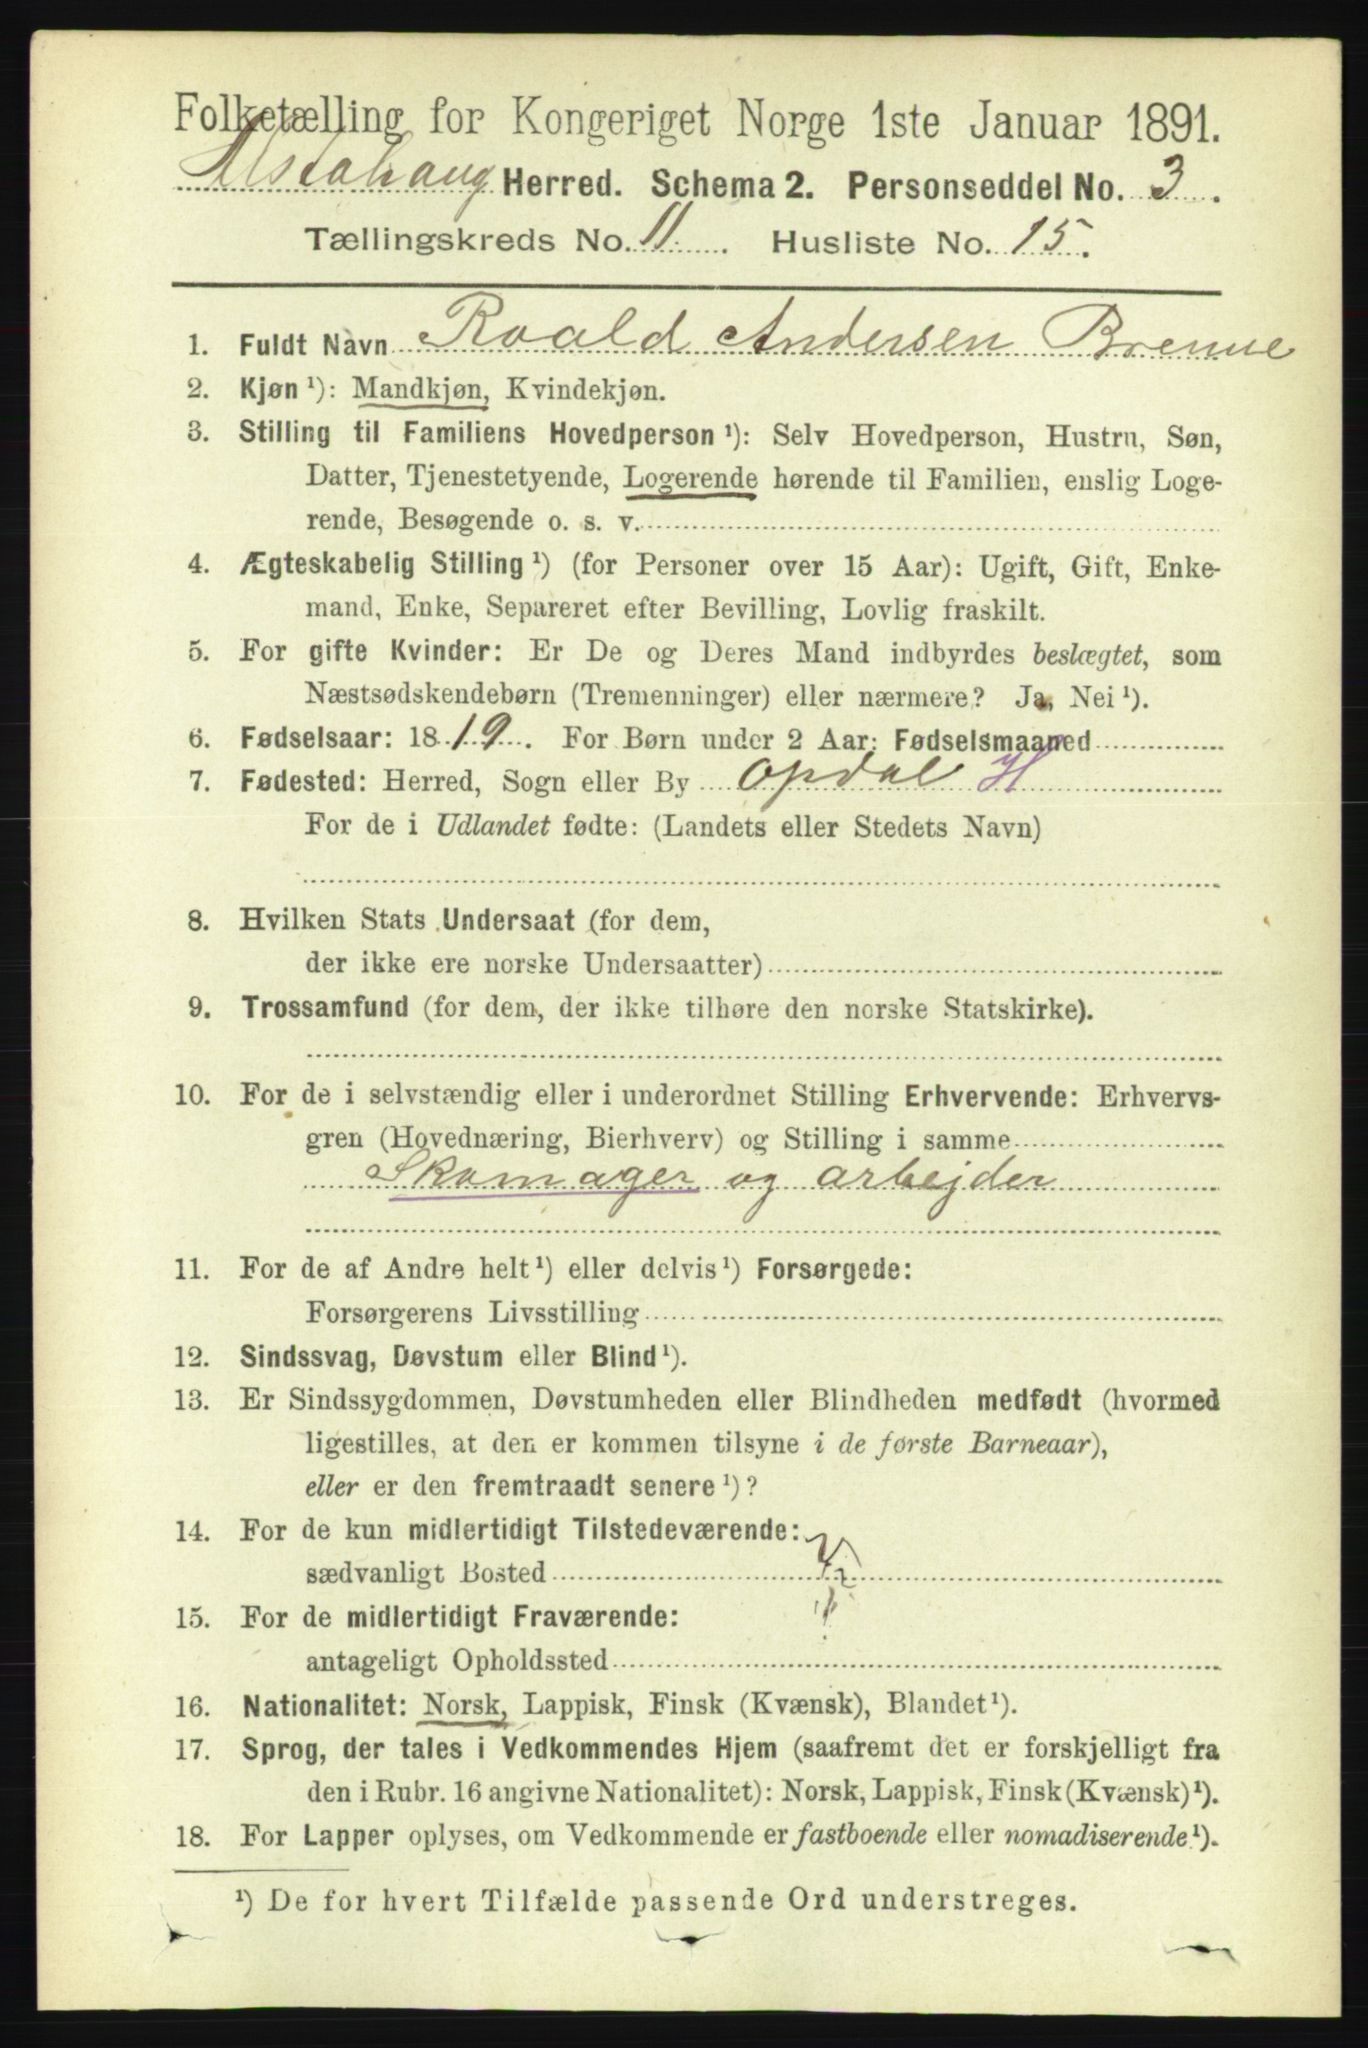 Folketælling for Kongeriget Norge 1ste Januar 1891.
Alstahaug Herred. Schema 2. Personseddel No. 3.
Tællingskreds No. 11. Husliste No. 15.
1. Fuldt Navn Roald Andersen Bremne
2. Kjøn ¹): Mandkjøn, Kvindekjøn.
3. Stilling til Familiens Hovedperson ¹): Selv Hovedperson, Hustru, Søn,
Datter, Tjenestetyende, Logerende hørende til Familien, enslig Loge-
rende, Besøgende o. s. v.
4. Ægteskabelig Stilling ¹) (for Personer over 15 Aar): Ugift, Gift, Enke-
mand, Enke, Separeret efter Bevilling, Lovlig fraskilt.
5. For gifte Kvinder: Er De og Deres Mand indbyrdes beslægtet, som
Næstsødskendebørn (Tremenninger) eller nærmere? Ja, Nei ¹).
6. Fødselsaar: 1819. For Børn under 2 Aar: Fødselsmaaned
7. Fødested: Herred, Sogn eller By Opdal H
For de i Udlandet fødte: (Landets eller Stedets Navn)
8. Hvilken Stats Undersaat (for dem,
der ikke ere norske Undersaatter)
9. Trossamfund (for dem, der ikke tilhøre den norske Statskirke).
10. For de i selvstændig eller i underordnet Stilling Erhvervende: Erhvervs-
gren (Hovednæring, Bierhverv) og Stilling i samme
Skomager og arbejder
11. For de af Andre helt ¹) eller delvis ¹) Forsørgede:
Forsørgerens Livsstilling
12. Sindssvag, Døvstum eller Blind ¹).
13. Er Sindssygdommen, Døvstumheden eller Blindheden medfødt (hvormed
ligestilles, at den er kommen tilsyne i de første Barneaar),
eller er den fremtraadt senere ¹)?
14. For de kun midlertidigt Tilstedeværende:
sædvanligt Bosted
15. For de midlertidigt Fraværende:
antageligt Opholdssted
16. Nationalitet: Norsk, Lappisk, Finsk (Kvænsk), Blandet ¹).
17. Sprog, der tales i Vedkommendes Hjem (saafremt det er forskjelligt fra
den i Rubr. 16 angivne Nationalitet): Norsk, Lappisk, Finsk (Kvænsk) ¹).
18. For Lapper oplyses, om Vedkommende er fastboende eller nomadiserende ¹).
¹) De for hvert Tilfælde passende Ord understreges.